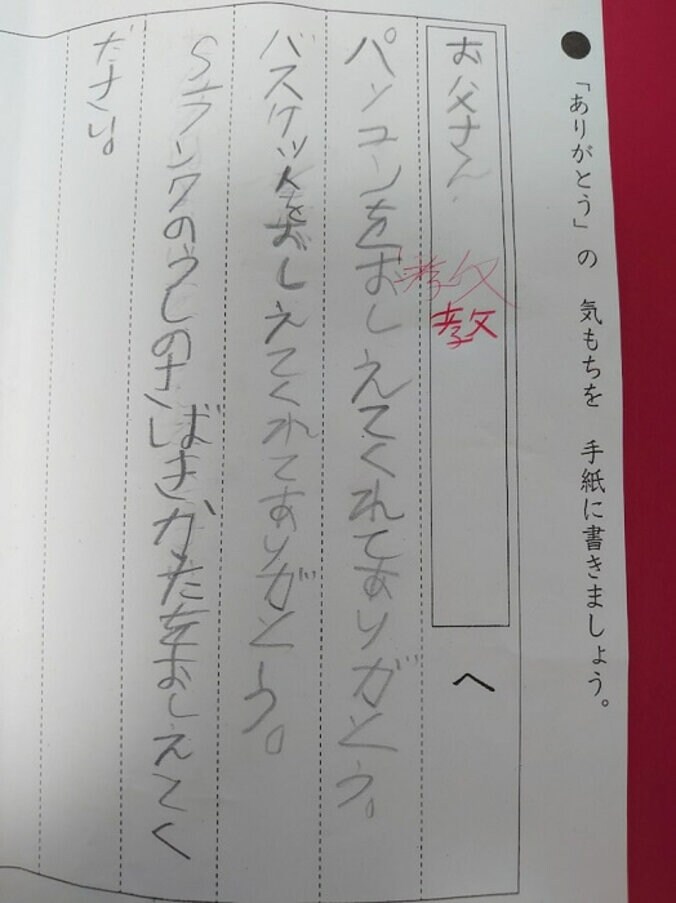 ●「ありがとう」の 気もちを 手紙に書きましょう。
お父さん へ
教
教
パソコンをおしえてくれてありがとう。
バスケットをおしえてくれてありがとう。
Sランクのうしのさばきかたをおしえてく
ださい。